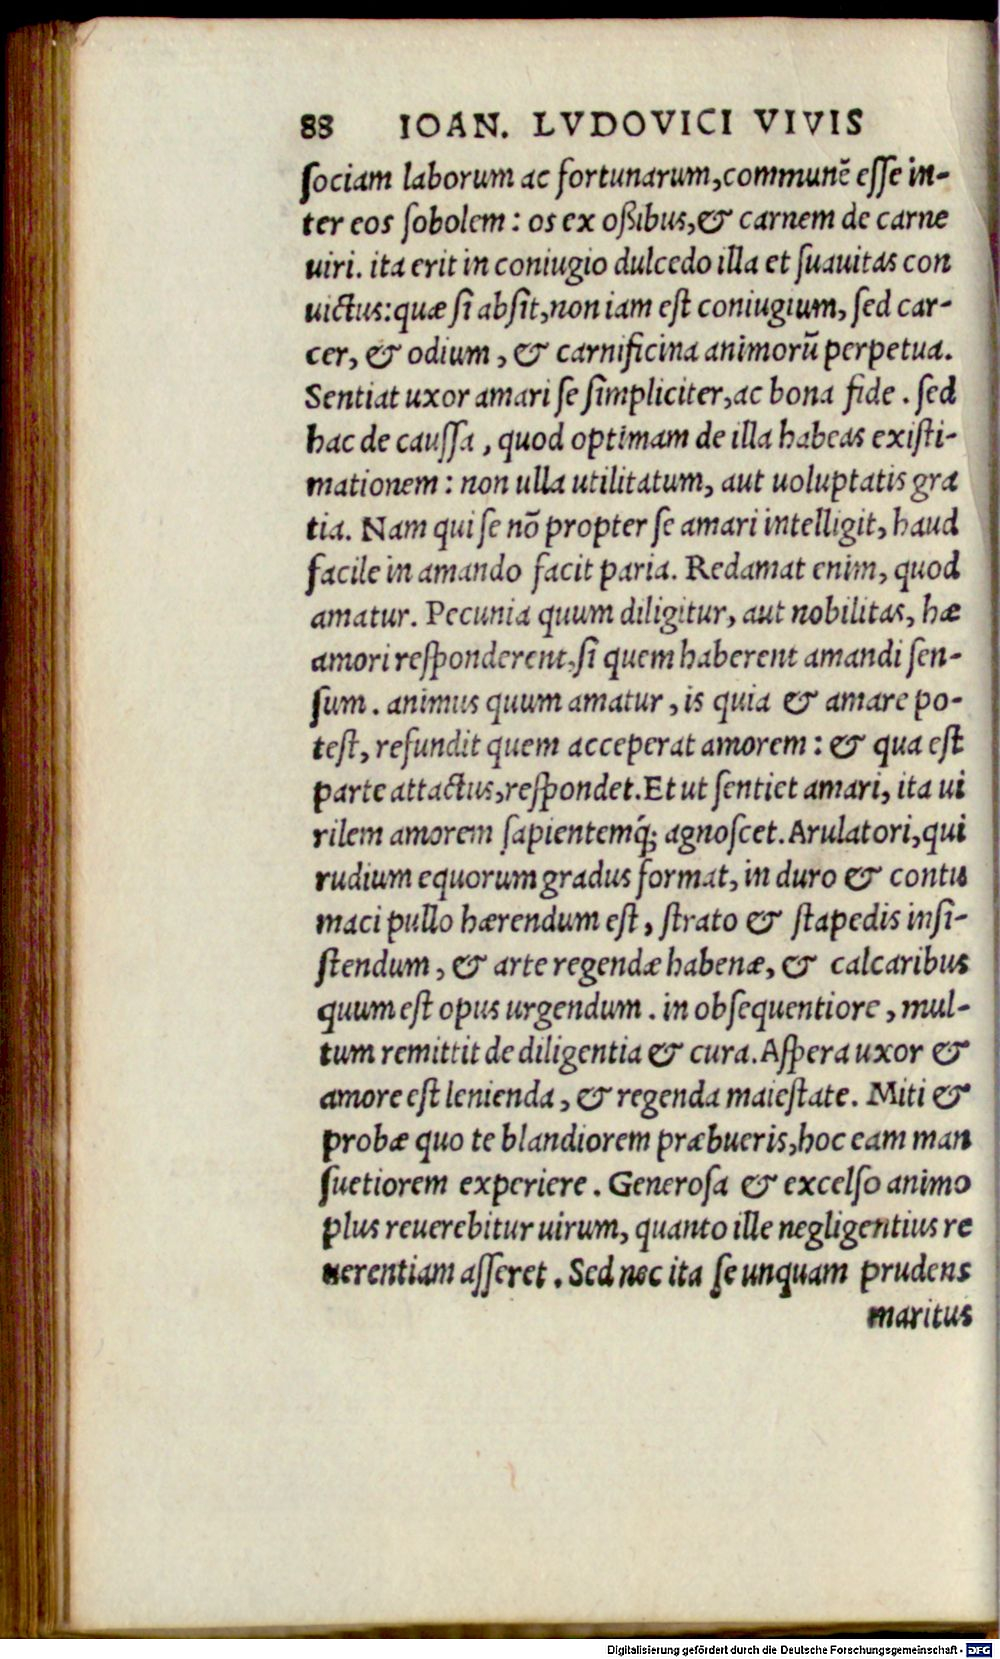 88 IOAN. LVDOVICI VIVIS
ſociam laborum ac fortunarum, communē eſſe in-
ter eos ſobolem: os ex oßibus, & carnem de carne
uiri. ita erit in coniugio dulcedo illa et ſuauitas con
uictus: quæ ſi abſit, non iam eſt coniugium, ſed car-
cer, & odium, & carnificina animorū perpetua.
Sentiat uxor amari ſe ſimpliciter, ac bona fide. ſed
hac de cauſſa, quod optimam de illa habeas exiſti-
mationem: non ulla utilitatum, aut uoluptatis gra
tia. Nam qui ſe nō propter ſe amari intelligit, haud
facile in amando facit paria. Redamat enim, quod
amatur. Pecunia quum diligitur, aut nobilitas, hæ
amori reſponderent, ſi quem haberent amandi ſen-
ſum. animus quum amatur, is quia & amare po-
teſt, refundit quem acceperat amorem: & qua eſt
parte attactus, reſpondet. Et ut ſentiet amari, ita ui
rilem amorem ſapientemq́; agnoſcet. Arulatori, qui
rudium equorum gradus format, in duro & contu
maci pullo hærendum eſt, ſtrato & ſtapedis inſi-
ſtendum, & arte regendæ habenæ, & calcaribus
quum eſt opus urgendum. in obſequentiore, mul-
tum remittit de diligentia & cura. Aſpera uxor &
amore eſt lenienda, & regenda maieſtate. Miti &
probæ quo te blandiorem præbueris, hoc eam man
ſuetiorem experiere. Generoſa & excelſo animo
plus reuerebitur uirum, quanto ille negligentius re
uerentiam aſſeret. Sed nec ita ſe unquam prudens
maritus
Digitalisierung gefördert durch die Deutsche Forschungsgemeinschaft - DFG